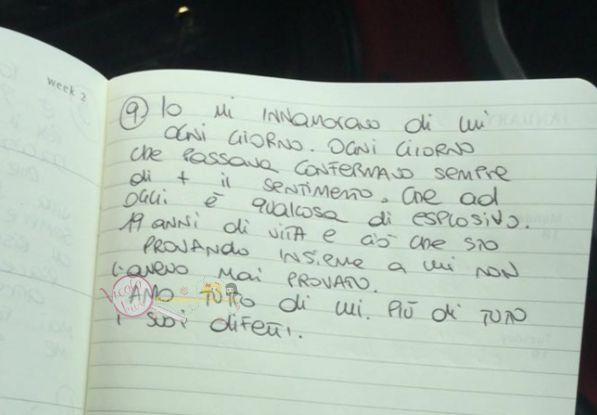 week 2
⑨ IO MI INNAMORAVO di lui
OGNI GIORNO. OGNI GIORNO
che PASSAVA CONFERMAVO SEMPRE
di + il SENTIMENTO. CHE ad
OGGI È QUALCOSA di ESPLOSIVO.
19 ANNI di VITA E ciò CHE STO
PROVANDO INSIEME A lui NON
L'AVEVO MAI PROVATO.
AMO TUTTO di lui. PIÙ di TUTTO
I SUOI difetti.